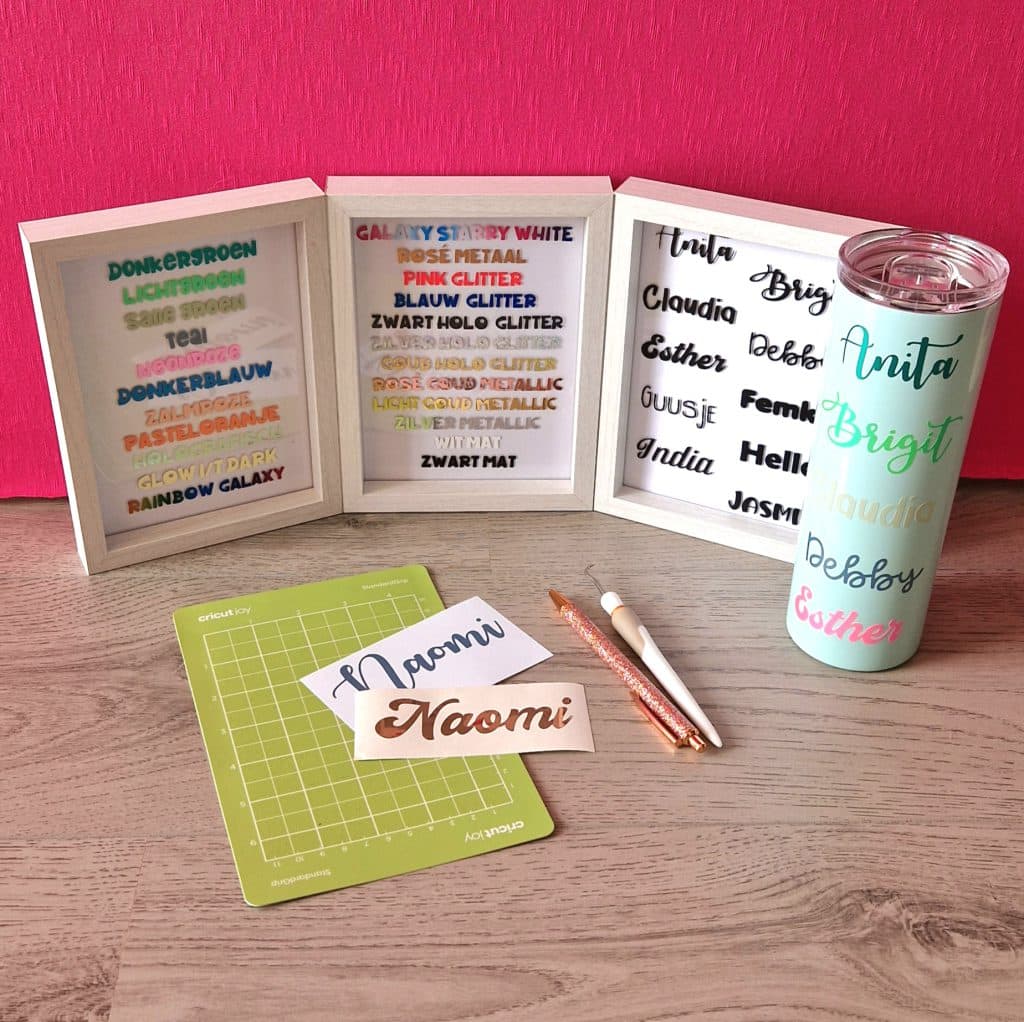 DONKERGROEN
LICHTGROEN
SALIE GROEN
TEAL
NEONROZE
DONKERBLAUW
ZALMROZE
PASTELORANJE
HOLOGRAFISCH
GLOW I/T DARK
RAINBOW GALAXY
GALAXY STARRY WHITE
ROSÉ METAAL
PINK GLITTER
BLAUW GLITTER
ZWART HOLO GLITTER
ZILVER HOLO GLITTER
GOUD HOLO GLITTER
ROSÉ GOUD METALLIC
LICHT GOUD METALLIC
ZILVER METALLIC
WIT MAT
ZWART MAT
Anita
Claudia
Esther
Guusje
India
Brigi
Debby
Femk
Hello
JASMI
Anita
Brigit
Claudia
Debby
Esther
cricut joy
StandardGrip
Naomi
Naomi
cricut joy
StandardGrip